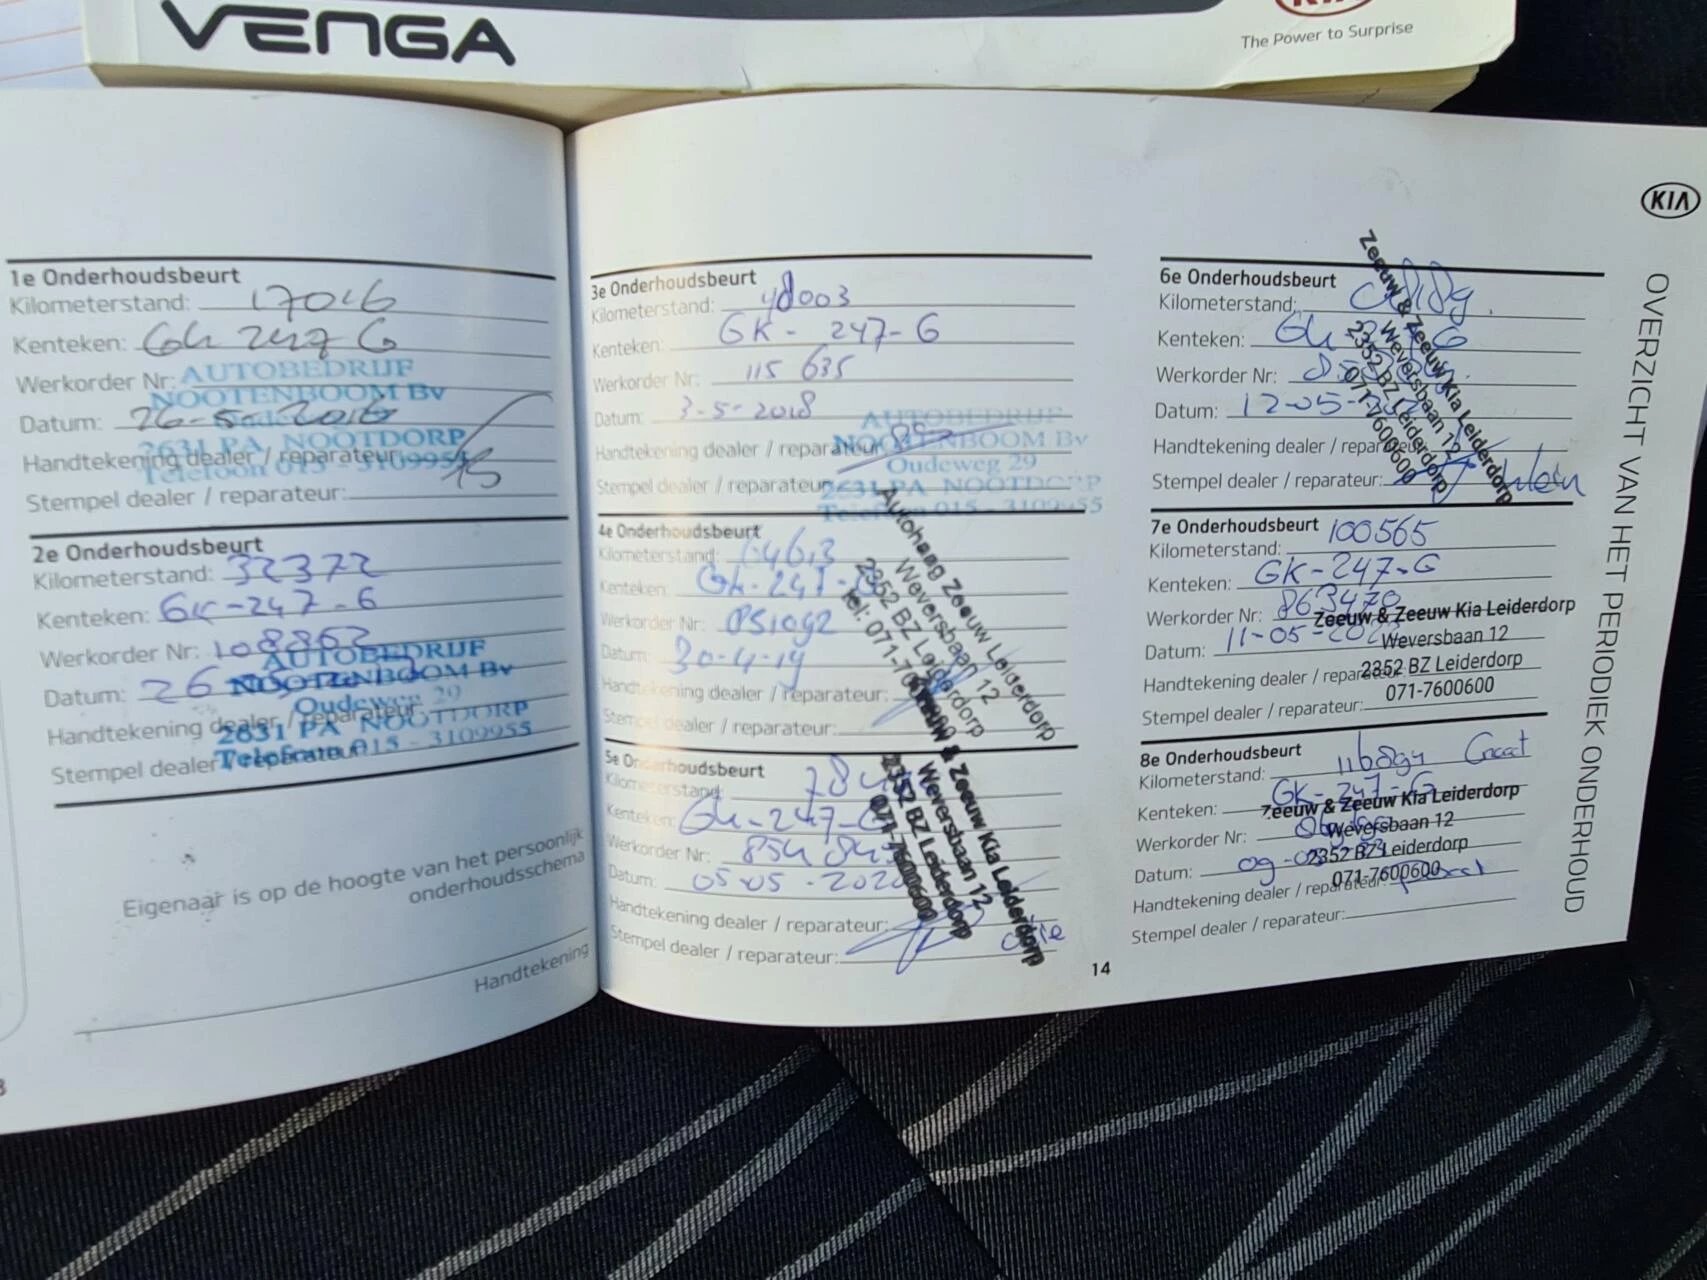 VENGA
KIA
The Power to Surprise
1e Onderhoudsbeurt
Kilometerstand: 17016
Kenteken: GK 247 G
Werkorder Nr:
Datum: 26-5-2016
Handtekening dealer / reparateur:
Stempel dealer / reparateur:
AUTOBEDRIJF
NOOTENBOOM BV
2631 PA NOOTDORP
Telefoon 015 - 3109955
2e Onderhoudsbeurt
Kilometerstand: 32372
Kenteken: GK-247-G
Werkorder Nr: 108862
Datum: 26
Handtekening dealer / reparateur:
Stempel dealer / reparateur:
AUTOBEDRIJF
NOOTENBOOM BV
Oudeweg 29
2631 PA NOOTDORP
Telefoon 015 - 3109955
Eigenaar is op de hoogte van het persoonlijk
onderhoudsschema
Handtekening
3e Onderhoudsbeurt
Kilometerstand: 48003
Kenteken: GK-247-G
Werkorder Nr: 115 635
Datum: 3-5-2018
Handtekening dealer / reparateur:
Stempel dealer / reparateur:
AUTOBEDRIJF
NOOTENBOOM BV
Oudeweg 29
2631 PA NOOTDORP
Telefoon 015 - 3109955
4e Onderhoudsbeurt
Kilometerstand:
Kenteken: GK-247-G
Werkorder Nr: 851092
Datum: 30-4-19
Handtekening dealer / reparateur:
Stempel dealer / reparateur:
Autohaag Zeeuw Leiderdorp
Weversbaan 12
2352 BZ Leiderdorp
Tel: 071-7600600
5e Onderhoudsbeurt
Kilometerstand:
Kenteken: GK-247-G
Werkorder Nr:
Datum: 05-05-2020
Handtekening dealer / reparateur:
Stempel dealer / reparateur:
Zeeuw & Zeeuw Kia Leiderdorp
Weversbaan 12
2352 BZ Leiderdorp
071-7600600
14
6e Onderhoudsbeurt
Kilometerstand:
Kenteken:
Werkorder Nr:
Datum: 12-05-
Handtekening dealer / reparateur:
Stempel dealer / reparateur:
Zeeuw & Zeeuw Kia Leiderdorp
Weversbaan 12
2352 BZ Leiderdorp
071-7600600
7e Onderhoudsbeurt
Kilometerstand: 100565
Kenteken: GK-247-G
Werkorder Nr: 863470
Datum: 11-05-
Handtekening dealer / reparateur:
Stempel dealer / reparateur:
Zeeuw & Zeeuw Kia Leiderdorp
Weversbaan 12
2352 BZ Leiderdorp
071-7600600
8e Onderhoudsbeurt
Kilometerstand:
Kenteken: GK-247-G
Werkorder Nr:
Datum: 09-
Handtekening dealer / reparateur:
Stempel dealer / reparateur:
Zeeuw & Zeeuw Kia Leiderdorp
Weversbaan 12
2352 BZ Leiderdorp
071-7600600
KIA
OVERZICHT VAN HET PERIODIEK ONDERHOUD